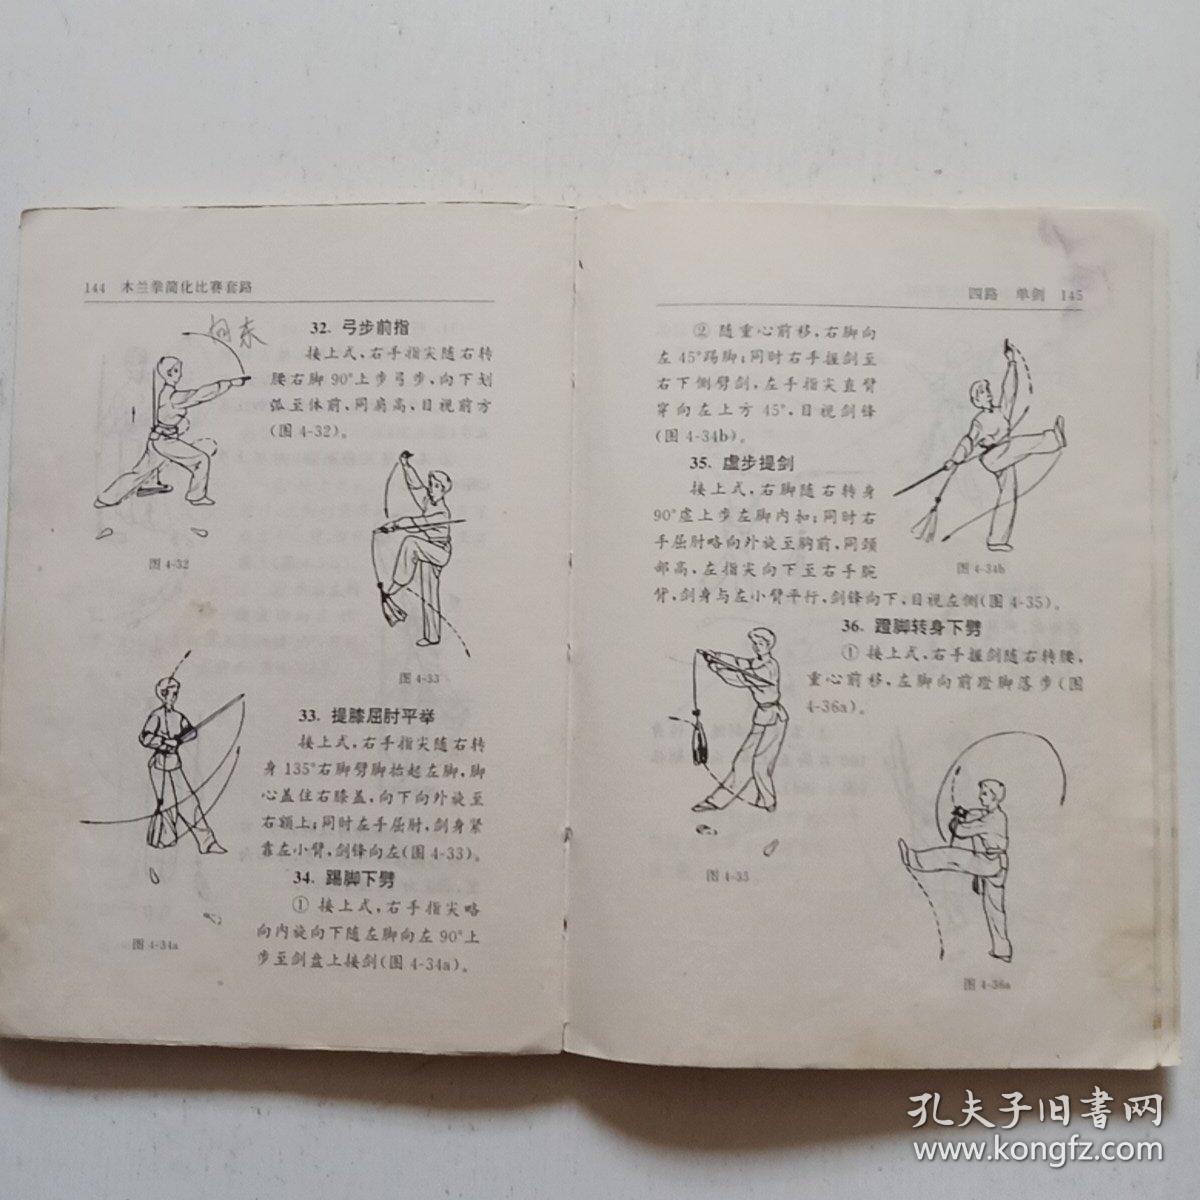 144 木兰拳简化比赛套路
向东
32. 弓步前指
接上式，右手指尖随右转
腰右脚90°上步弓步，向下划
弧至体前，同肩高，目视前方
(图4-32)。
图 4-32
图 4-33
33. 提膝屈肘平举
接上式，右手指尖随右转
身135°右脚劈脚抬起左脚，脚
心盖住右膝盖，向下向外旋至
右额上；同时左手屈肘，剑身紧
靠左小臂，剑锋向左(图4-33)。
34. 踢脚下劈
① 接上式，右手指尖略
向内旋向下随左脚向左90°上
步至剑盘上接剑(图4-34a)。
图 4-34a
四路 单剑 145
② 随重心前移，右脚向
左45°踢脚；同时右手握剑至
右下侧劈剑，左手指尖直臂
穿向左上方45°，目视剑锋
(图4-34b)。
图 4-34b
35. 虚步提剑
接上式，右脚随右转身
90°虚上步左脚内扣；同时右
手屈肘略向外旋至胸前，同颈
部高，左指尖向下至右手腕
背，剑身与左小臂平行，剑锋向下，目视左侧(图4-35)。
36. 蹬脚转身下劈
① 接上式，右手握剑随右转腰，
重心前移，左脚向前蹬脚落步(图
4-36a)。
图 4-35
图 4-36a
孔夫子旧书网
www.kongfz.com